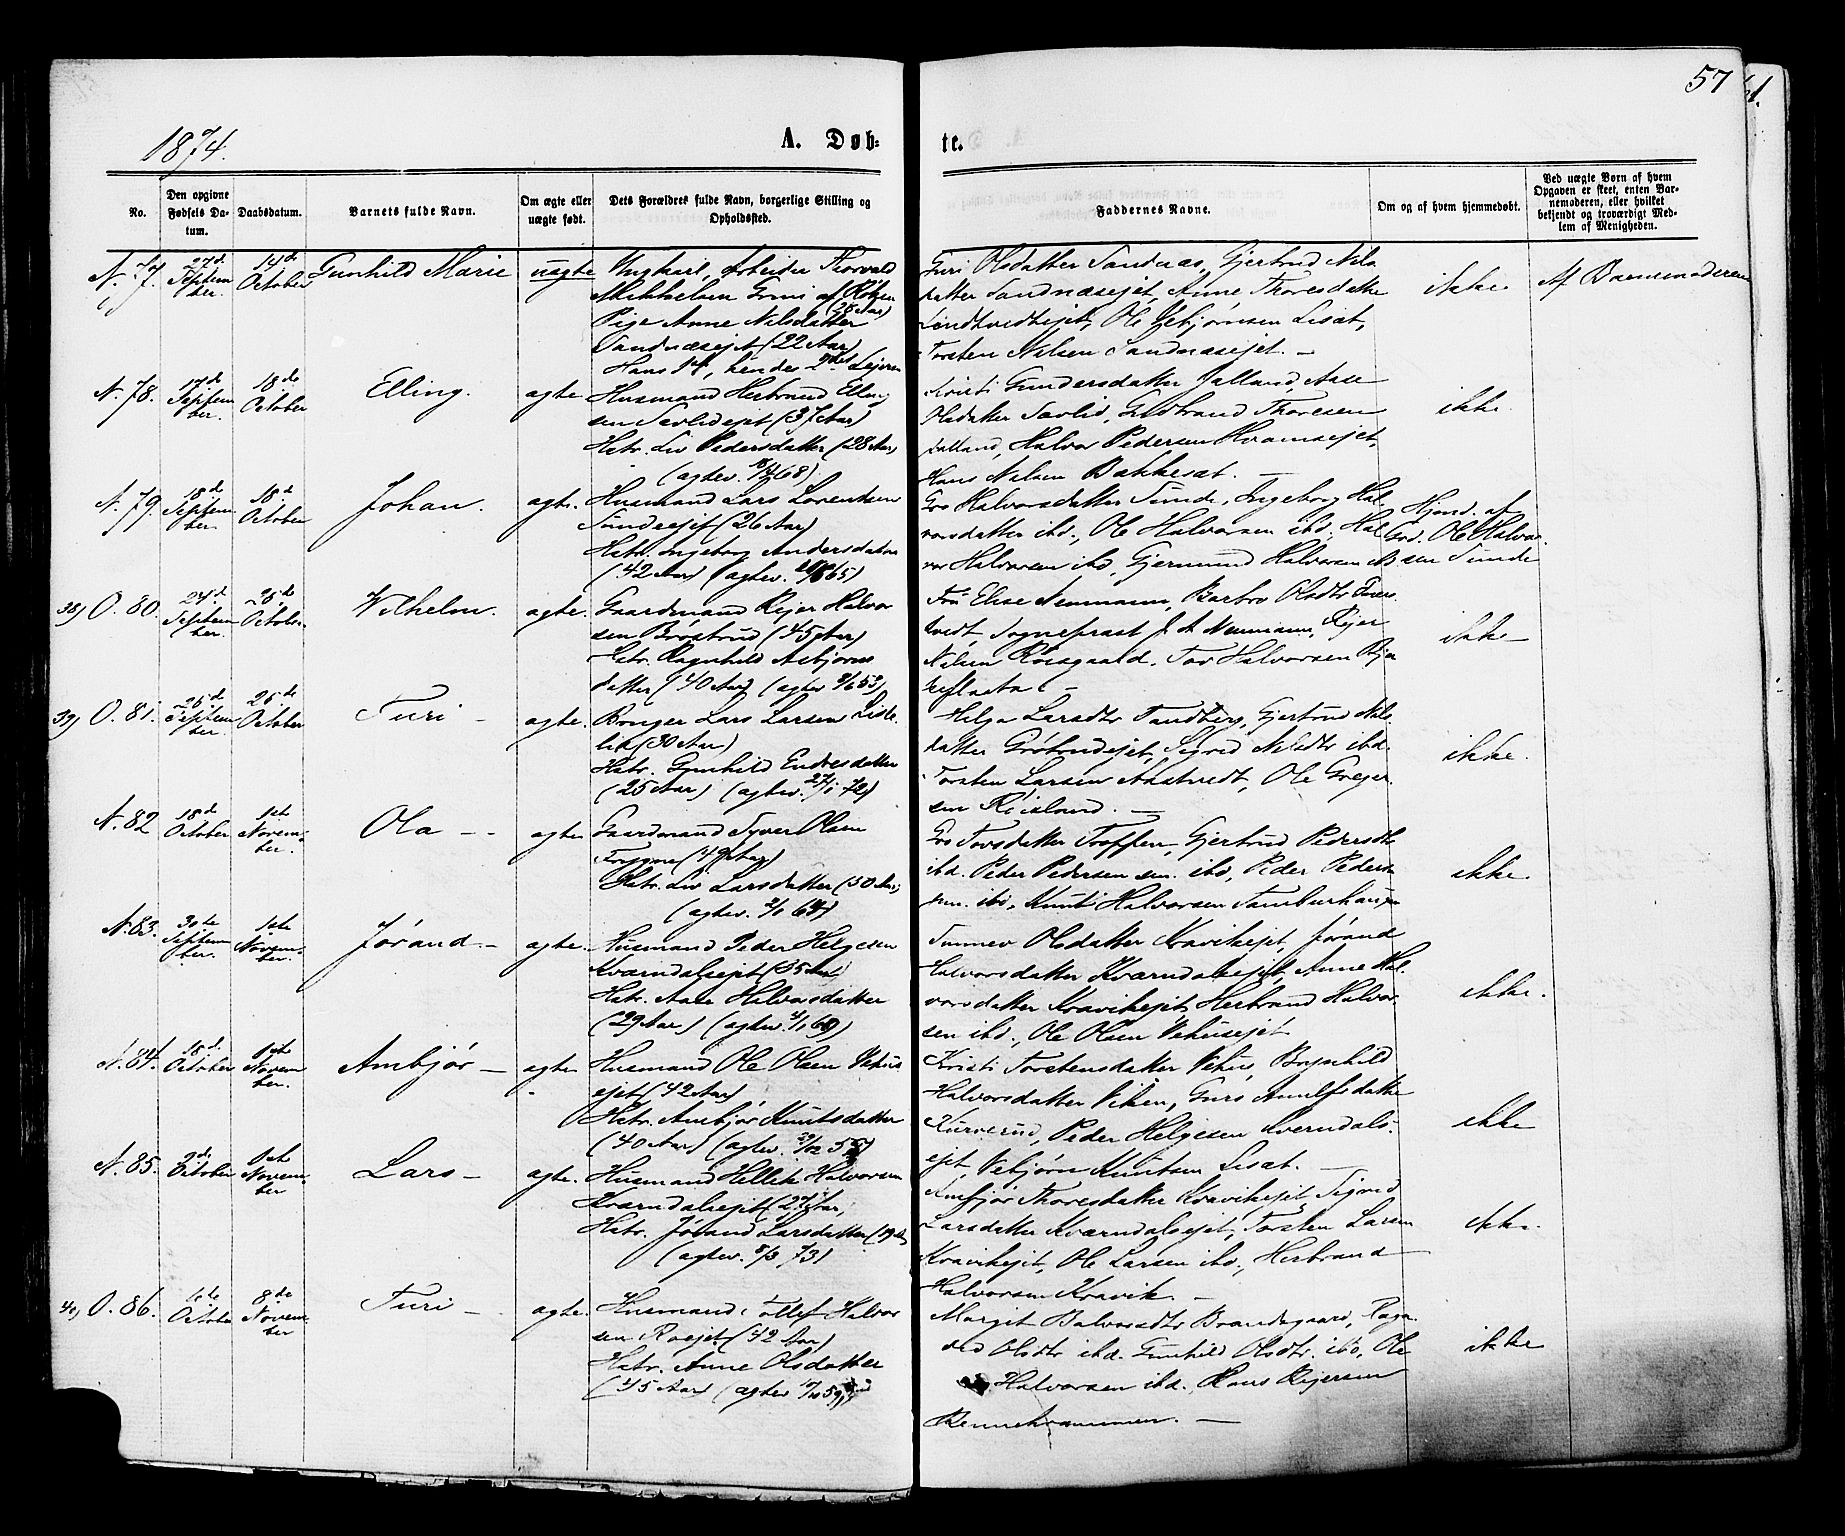 57
1874.
A. Døb-
te.
No.
Den opgivne
Fødsels Da-
tum.
Daabsdatum.
Barnets fulde Navn.
Om ægte eller
uægte født.
Dets Forældres fulde Navn, borgerlige Stilling og
Opholdssted.
Faddernes Navne.
Om og af hvem hjemmedøbt.
Ved uægte Børn af hvem
Opgaven er skeet, enten Bar-
nemoderen, eller hvilket
bekjendt og troværdigt Med-
lem af Menigheden.
N. 77.
27de
Septem
ber.
October
Gunhild Marie
uægte
Ungkarl, Arbeider Thorvald
Mikkelsen Grini af
Pige Anne Nilsdatter
Sandnæsejet (22 Aar)
Hans 14, hendes 2det Leierm
Guri Olsdatter Sandnæs, Gjertrud Nils
datter Sandnæsejet, Anne Thoresdatter
Ole Vebjørnsen Lisat,
Torsten Nilsen Sandnæsejet. –
ikke
Af Barnemoderen
N. 78.
17de
Septem
ber.
18de
October
Elling.
ægte
Husmand Herbrand Elling
sen Savlidejet (37 Aar)
Hstr. Liv Pedersdatter (28 Aar)
Kristi Gundersdatter Jalland, Aase
Olsdatter Savlid, Gulbrand Thoresen
Jalland, Halvor Pedersen Kramsejet,
Hans Nilsen Bakkesæt. –
ikke.
N. 79.
18de
Septem
ber.
18de
October
Johan.
ægte.
Husmand Lars Lorentsen
Sundeejet (26 Aar)
Hstr. Ingeborg Andersdatter
(42 Aar)
Gro Halvorsdatter Sunde, Ingeborg Hal
vorsdatter ibd., Ole Halvorsen ibd., Hal
vor Halvorsen ibd, Gjermund Halvorsen
Hjmd. af
Grd. Ole Halvor
sen Sunde
38) O. 80.
24de
Septem
ber.
October.
Wilhelm.
ægte.
Gaardmand Reier Halvor
sen Brøstrud (45 Aar)
Hstr. Ragnhild Asbjørns
datter (40 Aar)
Fru Elise Neumann, Barbro Olsdtr
Sogneprest J. A. Neumann, Reier
Nilsen Roesgaard. Tor Halvorsen
ikke –
39) O. 81.
Septem
ber.
October
Turi –
ægte.
Lars Larsen
lid (30 Aar)
Hstr. Gunhild Endresdatter
(25 Aar) (ægtev. 27/1 72)
Helga Larsdtr Tandberg, Gjertrud Nils
datter Grøtrudejet, Sigrid Nilsdtr ibd.
Torsten Larsen Aastvedt, Ole Greger
sen Røislund. –
ikke.
N. 82
18de
October
1ste
Novem
ber.
Ola –
ægte
Gaardmand Syver Olsen
Frygne (49 Aar)
Hstr. Liv Larsdatter (30 Aar)
Gro Torsdatter Toeffen, Gjertrud Pedersdtr
ibd. Peder Pedersen sen. ibd, Peder Peder
sen. ibd, Knut Halvorsen Tamburhaug
ikke.
N. 83.
30te
Septem
ber.
1ste
Novem
ber.
Jørand. –
ægte.
Husmand Peder Helgesen
Kværndalsejet (35 Aar)
Hstr. Aase Halvorsdatter
(29 Aar) (ægtev. 4/1 69)
Sunnev Olsdatter Kravikejet, Jørand
Halvorsdatter Kværndalsejet, Anne Hal
vorsdatter Kravikejet, Herbrand Halvor
sen ibd., Ole Olsen Vehusejet
ikke.
N. 84.
18de
October
1ste
Novem
ber.
Ambjør –
ægte
Husmand Ole Olsen Vehus
ejet (42 Aar)
Hstr. Ambjør Knutsdatter
(40 Aar)
Kristi Torstensdatter Vehus, Brynhild
Halvorsdatter Viken, Guro Arnulfsdatter
Kurverud, Peder Helgesen Kverndals-
ejet Vebjørn Knutsen Lisat. –
ikke
N. 85.
2de
October
1ste
Novem
ber
Lars –
ægte.
Husmand Hellik Halvorsen
Kværndalsejet (27 Aar,
Hstr. Jørand Larsdatter (19 Aar)
(ægtev. 8/3 73)
Ambjør Thoresdatter Kravikejet, Sigrid
Larsdatter Kværndalsejet, Torsten Larsen
Kravikejet, Ole Larsen ibd., Herbrand
Halvorsen Kravik. –
ikke.
40) O. 86.
October
8de
Novem
ber
Turi –
ægte.
Husmand Tollef Halvor
sen Roejet (42 Aar)
Hstr. Anne Olsdatter
(45 Aar)
Margit Halvorsdtr Brandsgaard, Ragn
Olsdtr ibd. Gunhild Olsdtr. ibd, Ole
Halvorsen ibd., Hans Reiersen
Rennekrammen. –
ikke